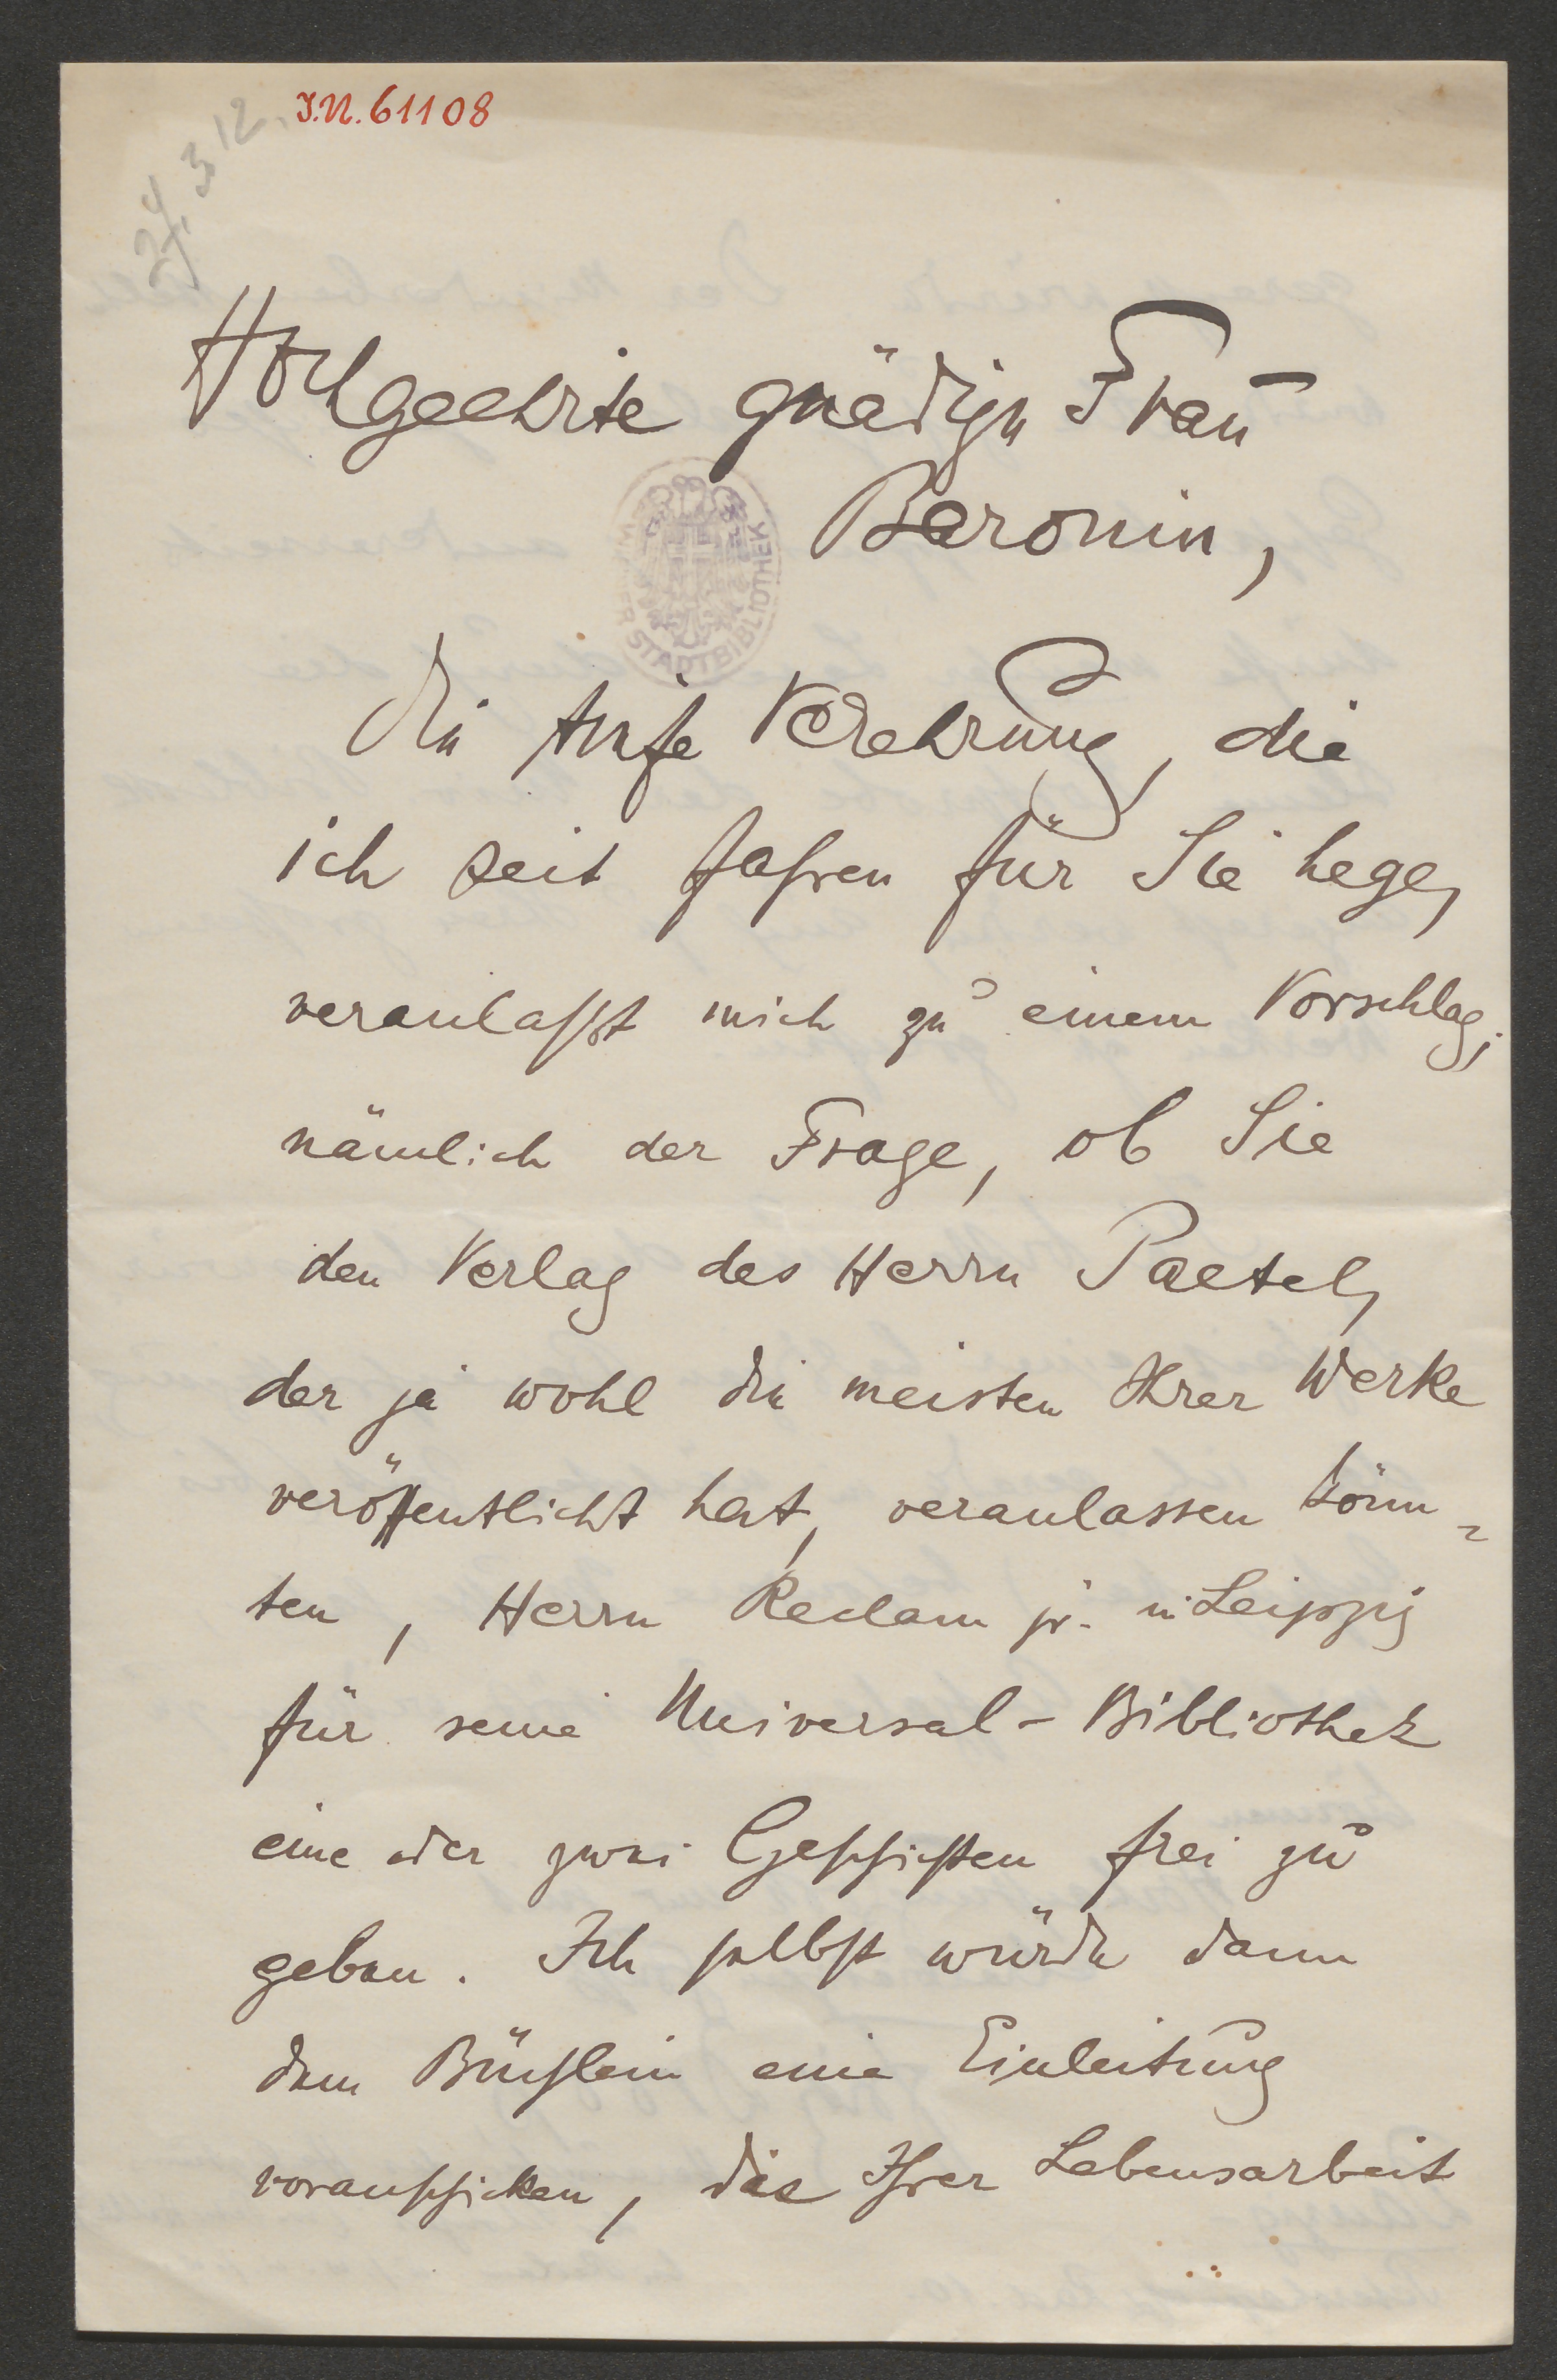 I.N. 61108
24. 3 12.
Hochgeehrte gnädige Frau
Baronin,
STADTBIBLIOTHEK
die tiefe Verehrung, die
ich seit Jahren für Sie hege,
veranlasst mich zu einem Vorschlag;
nämlich der Frage, ob Sie
den Verlag des Herrn Paetel,
der ja wohl die meisten Ihrer Werke
veröffentlicht hat, veranlassen könn-
ten, Herrn Reclam jr. in Leipzig
für seine Universal-Bibliothek
eine oder zwei Geschichten frei zu
geben. Ich selbst würde dann
dem Büchlein eine Einleitung
vorausschicken, die Ihrer Lebensarbeit